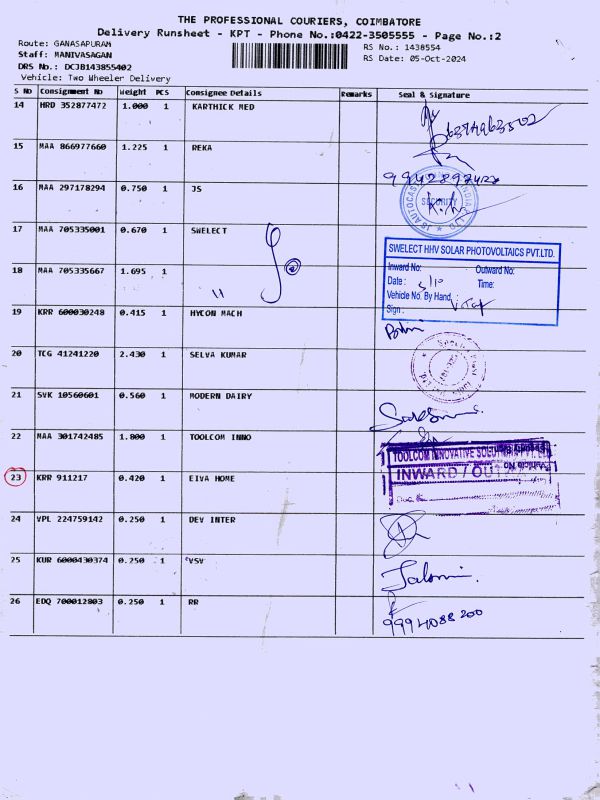 THE PROFESSIONAL COURIERS, COIMBATORE
Delivery Runsheet - KPT - Phone No.:0422-3505555 - Page No.:2
Route: GANASAPURAM
RS No.: 1438554
Staff: MANIVASAGAN
RS Date: 05-Oct-2024
DRS No.: DCJB143855402
Vehicle: Two Wheeler Delivery
S No Consignment No Weight PCS Consignee Details Remarks Seal & Signature
14 HRD 352877472 1.000 1 KARTHICK MED
15 MAA 866977660 1.225 1 REKA
16 MAA 297178294 0.750 1 JS
SECURITY
17 MAA 705335001 0.670 1 SWELECT
SWELECT HHV SOLAR PHOTOVOLTAICS PVT.LTD.
Inward No: Outward No:
Date : 5/10 Time:
Vehicle No. By Hand.
Sign :
18 MAA 705335667 1.695 1 "
19 KRR 600030248 0.415 1 HYCON MACH
20 TCG 41241220 2.430 1 SELVA KUMAR
21 SVK 10560601 0.560 1 MODERN DAIRY
22 MAA 301742485 1.800 1 TOOLCOM INNO
TOOLCOM INNOVATIVE SOLUTION PVT. LTD
INWARD / OUTWARD
23 KRR 911217 0.420 1 EIVA HOME
24 VPL 224759142 0.250 1 DEV INTER
25 KUR 6000430374 0.250 1 VSV
26 EDQ 700012803 0.250 1 RR
9994088200